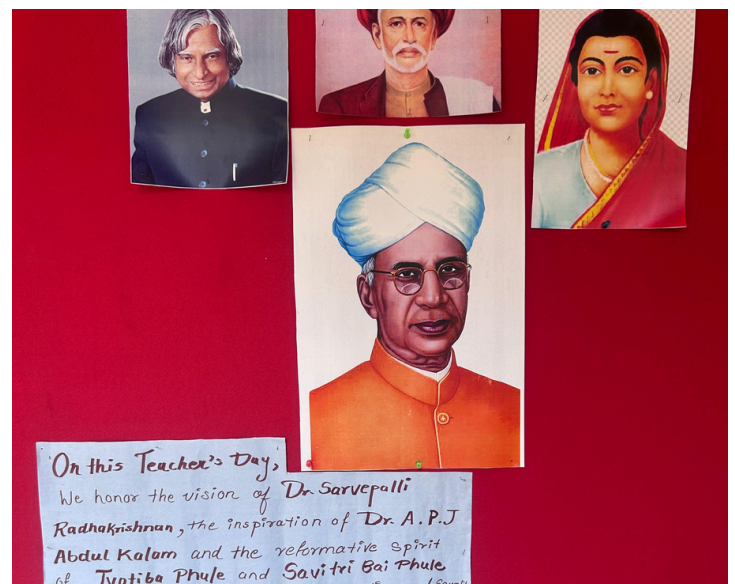 On this Teacher's Day,
We honor the vision of Dr. Sarvepalli
Radhakrishnan, the inspiration of Dr. A.P.J
Abdul Kalam and the reformative spirit
of Jyotiba Phule and Savitri Bai Phule